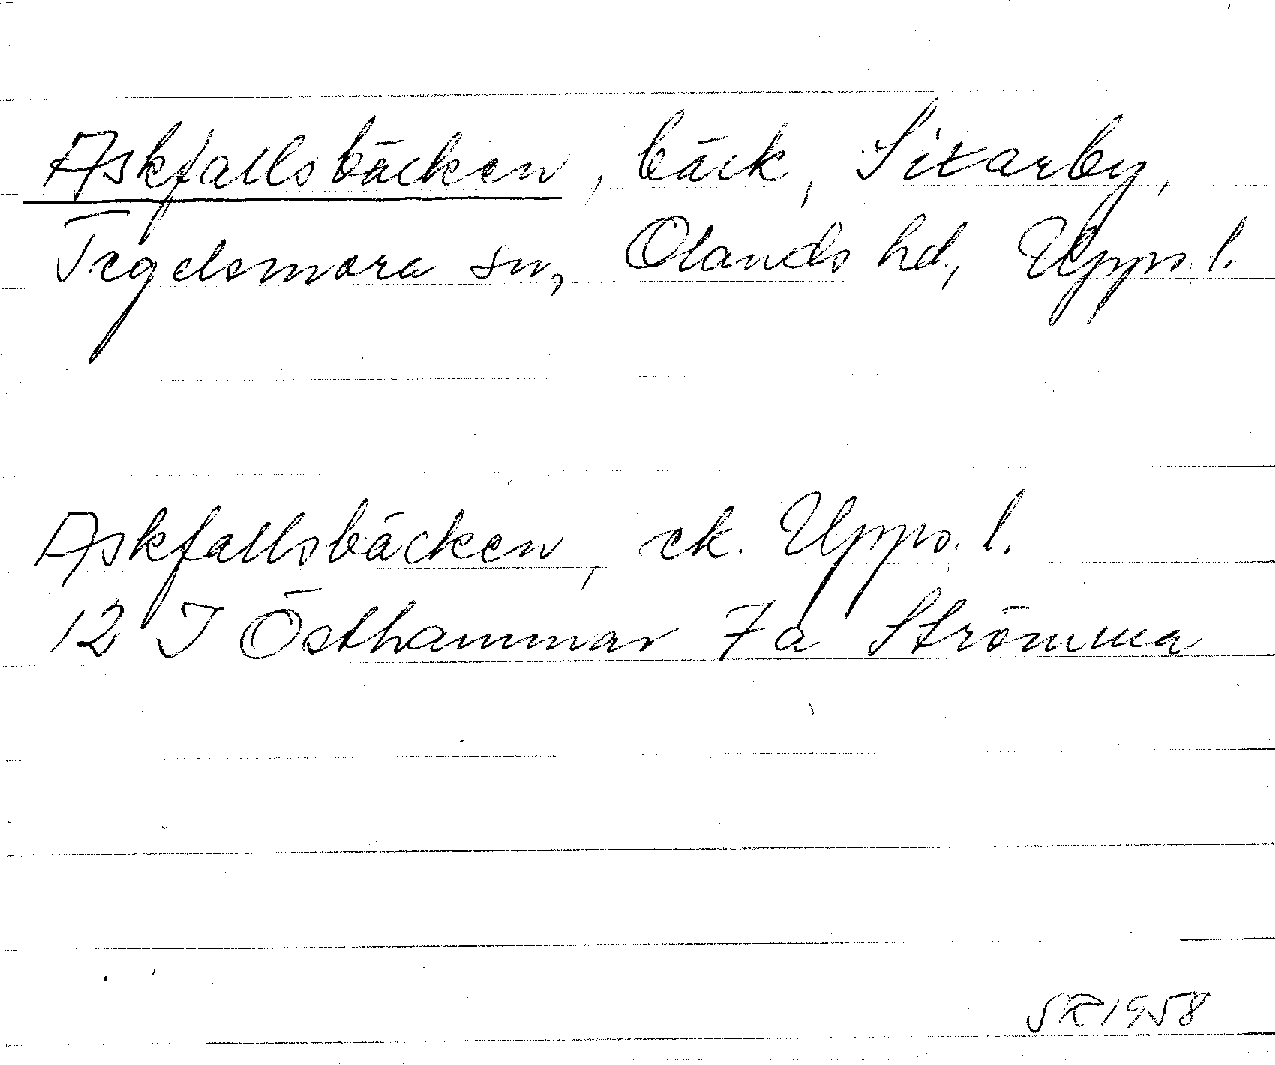 Askfallsbäcken, bäck, Sixarby,
Tegelsmora sn, Olands hd, Upps. l.
Askfallsbäcken, ek. Upps. l.
12 I Östhammar 7a Strömma
SR 1958